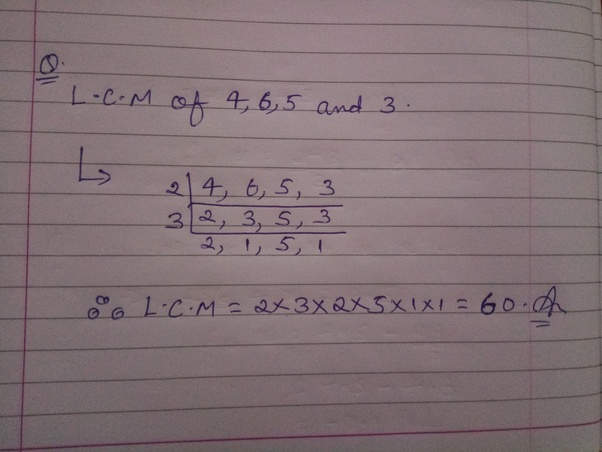 Q.
L.C.M of 4, 6, 5 and 3.
2 | 4, 6, 5, 3
3 | 2, 3, 5, 3
2, 1, 5, 1
∴ L.C.M = 2×3×2×5×1×1 = 60.